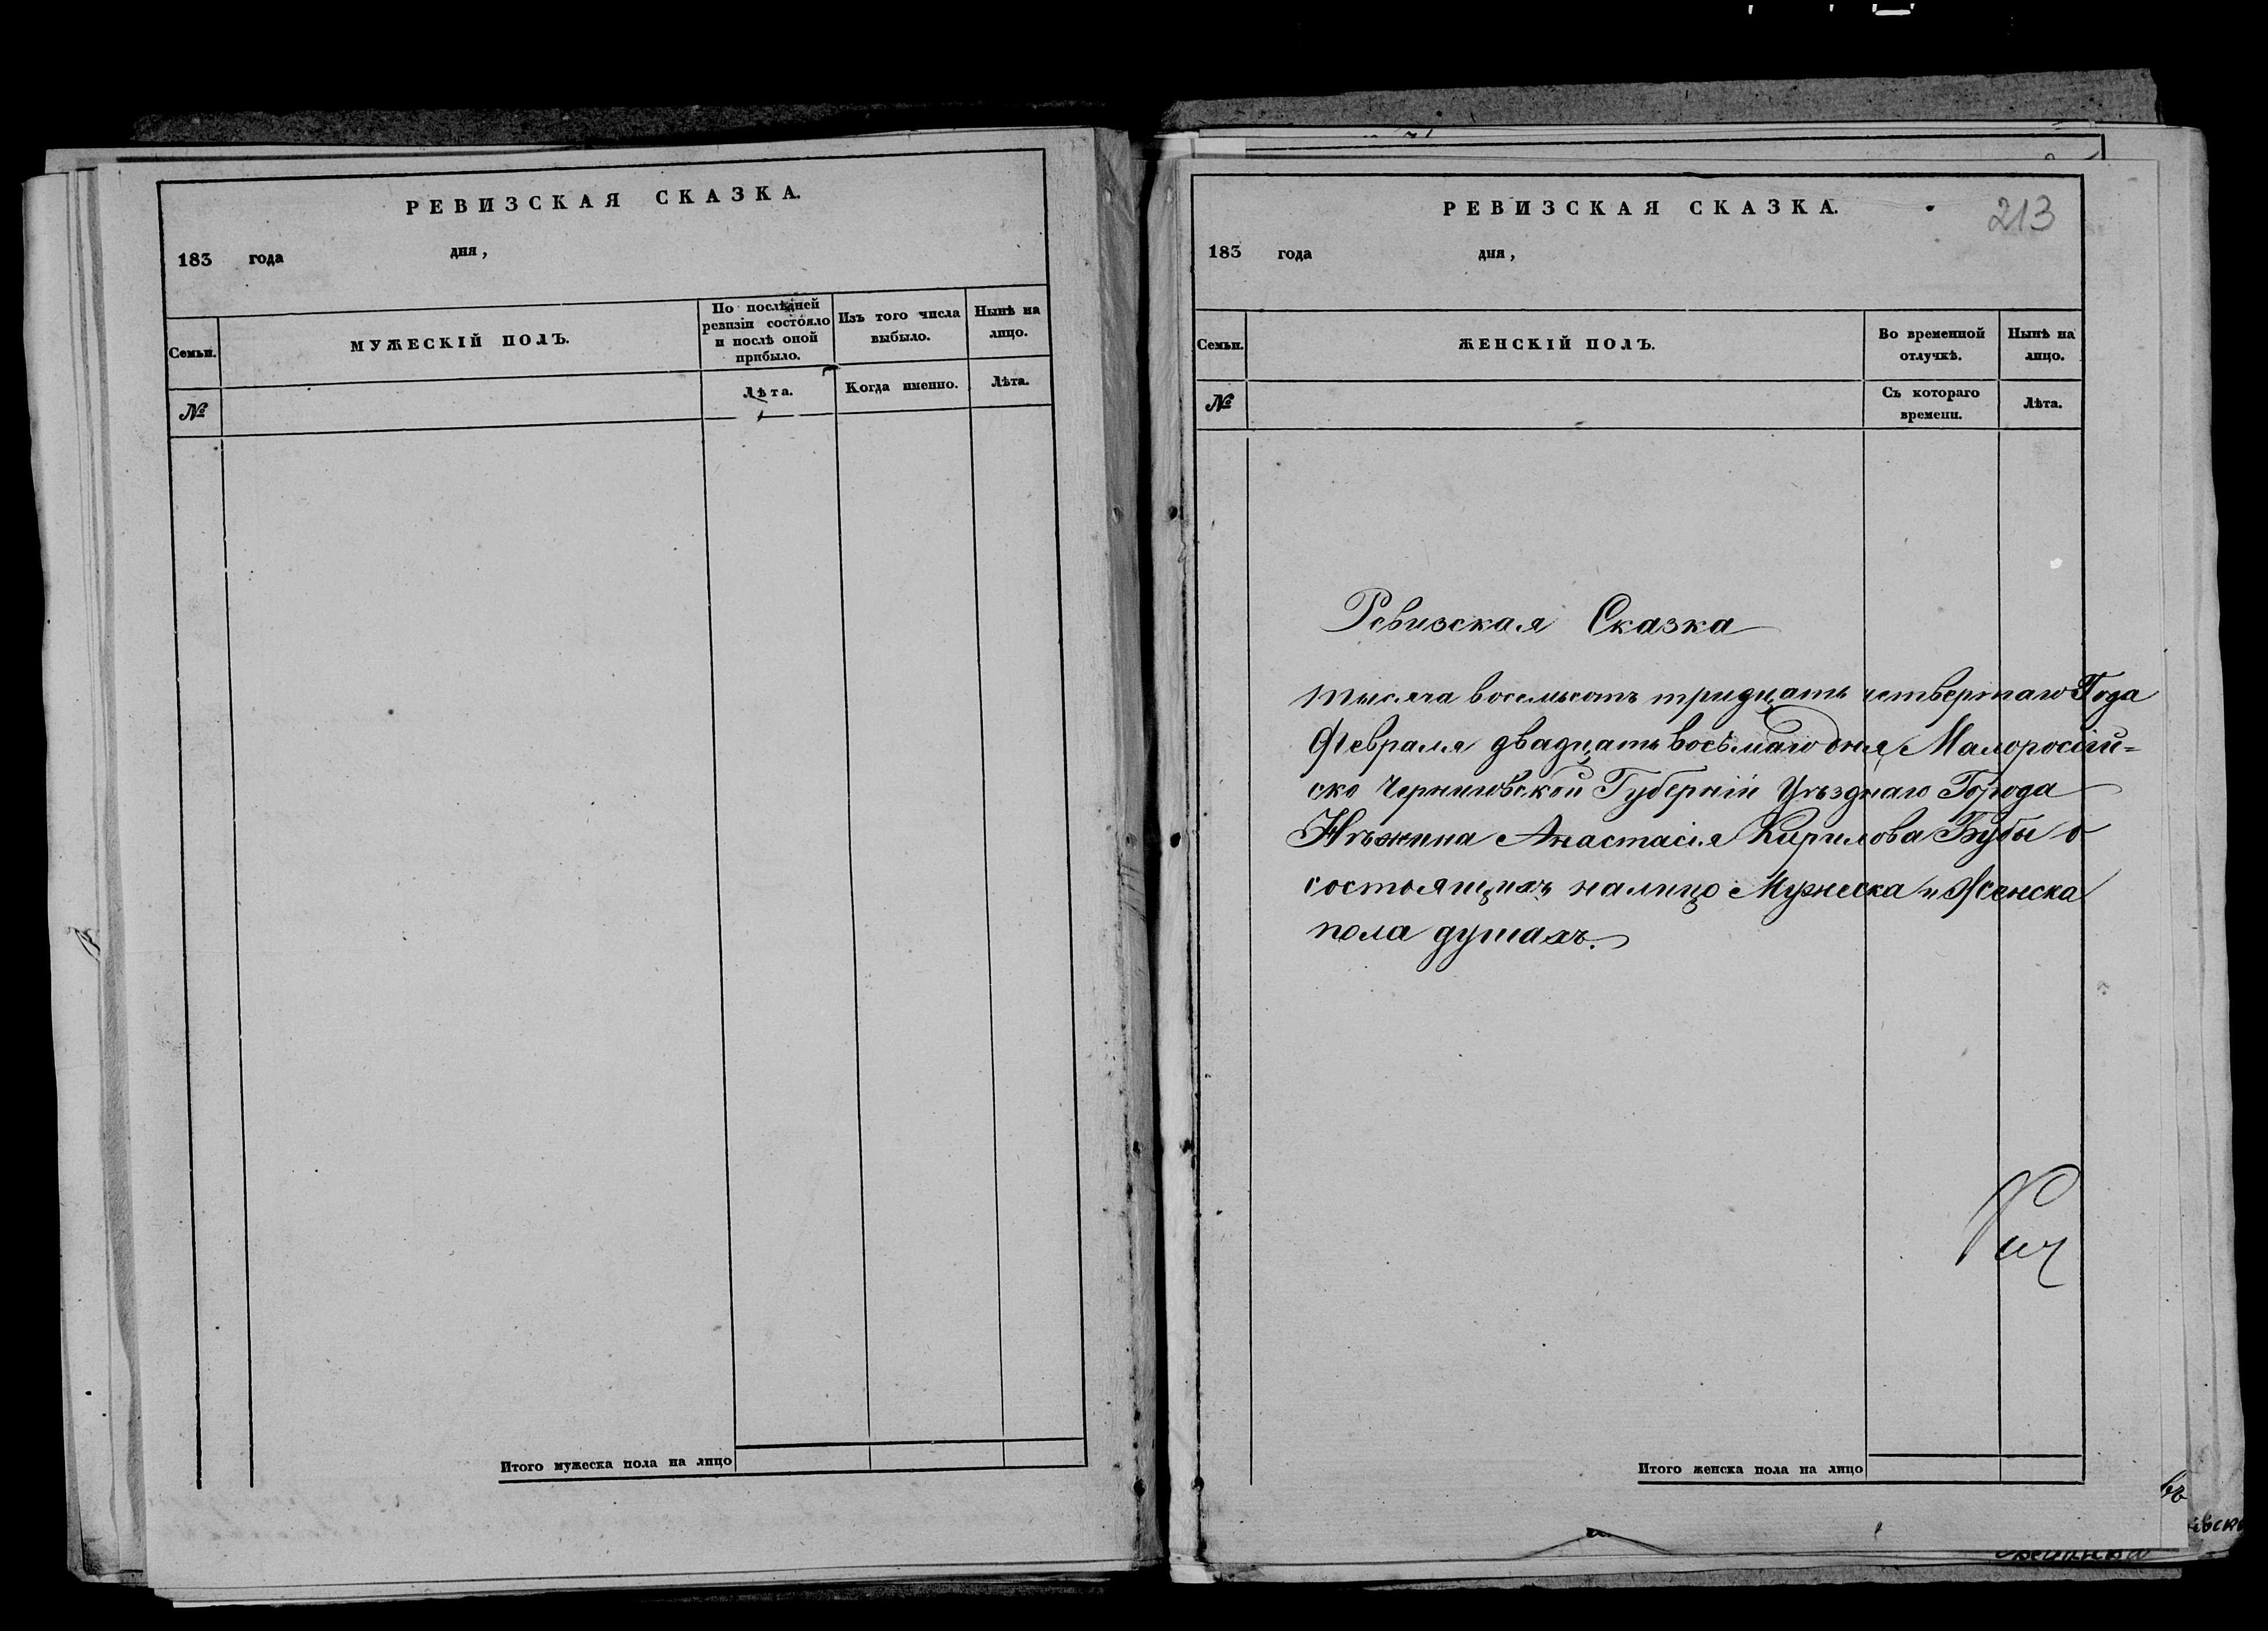 РЕВИЗСКАЯ СКАЗКА.
183 года дня,
Семьи.
МУЖЕСКІЙ ПОЛЪ.
По послѣдней
ревизіи состояло
и послѣ оной
прибыло.
Изъ того числа
выбыло.
Нынѣ на
лицо.
№
Лѣта.
Когда именно.
Лѣта.
Итого мужеска пола на лицо
РЕВИЗСКАЯ СКАЗКА.
213
183 года дня,
Семьи.
ЖЕНСКІЙ ПОЛЪ.
Во временной
отлучкѣ.
Нынѣ на
лицо.
№
Съ котораго
времени.
Лѣта.
Ревизская Сказка
тысяча восемьсотъ тридцать четвертаго Года
Февраля двадцать восьмаго дня, Малоросій-
ско Черниговской Губерніи Уѣзднаго Города
Нѣжина Анастасія Кирилова Бубы о
состоящихъ налицо Мужеска и Женска
пола душахъ.
Итого женска пола на лицо
въ